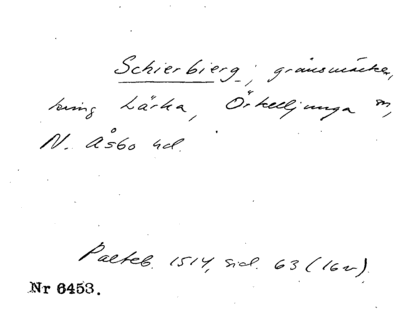 Schierbierg; gränsmärke,
kring Lärka, Örkelljunga sn,
N. Åsbo hd.
Palteb. 1514, sid. 63 (16v).
Nr 6453.